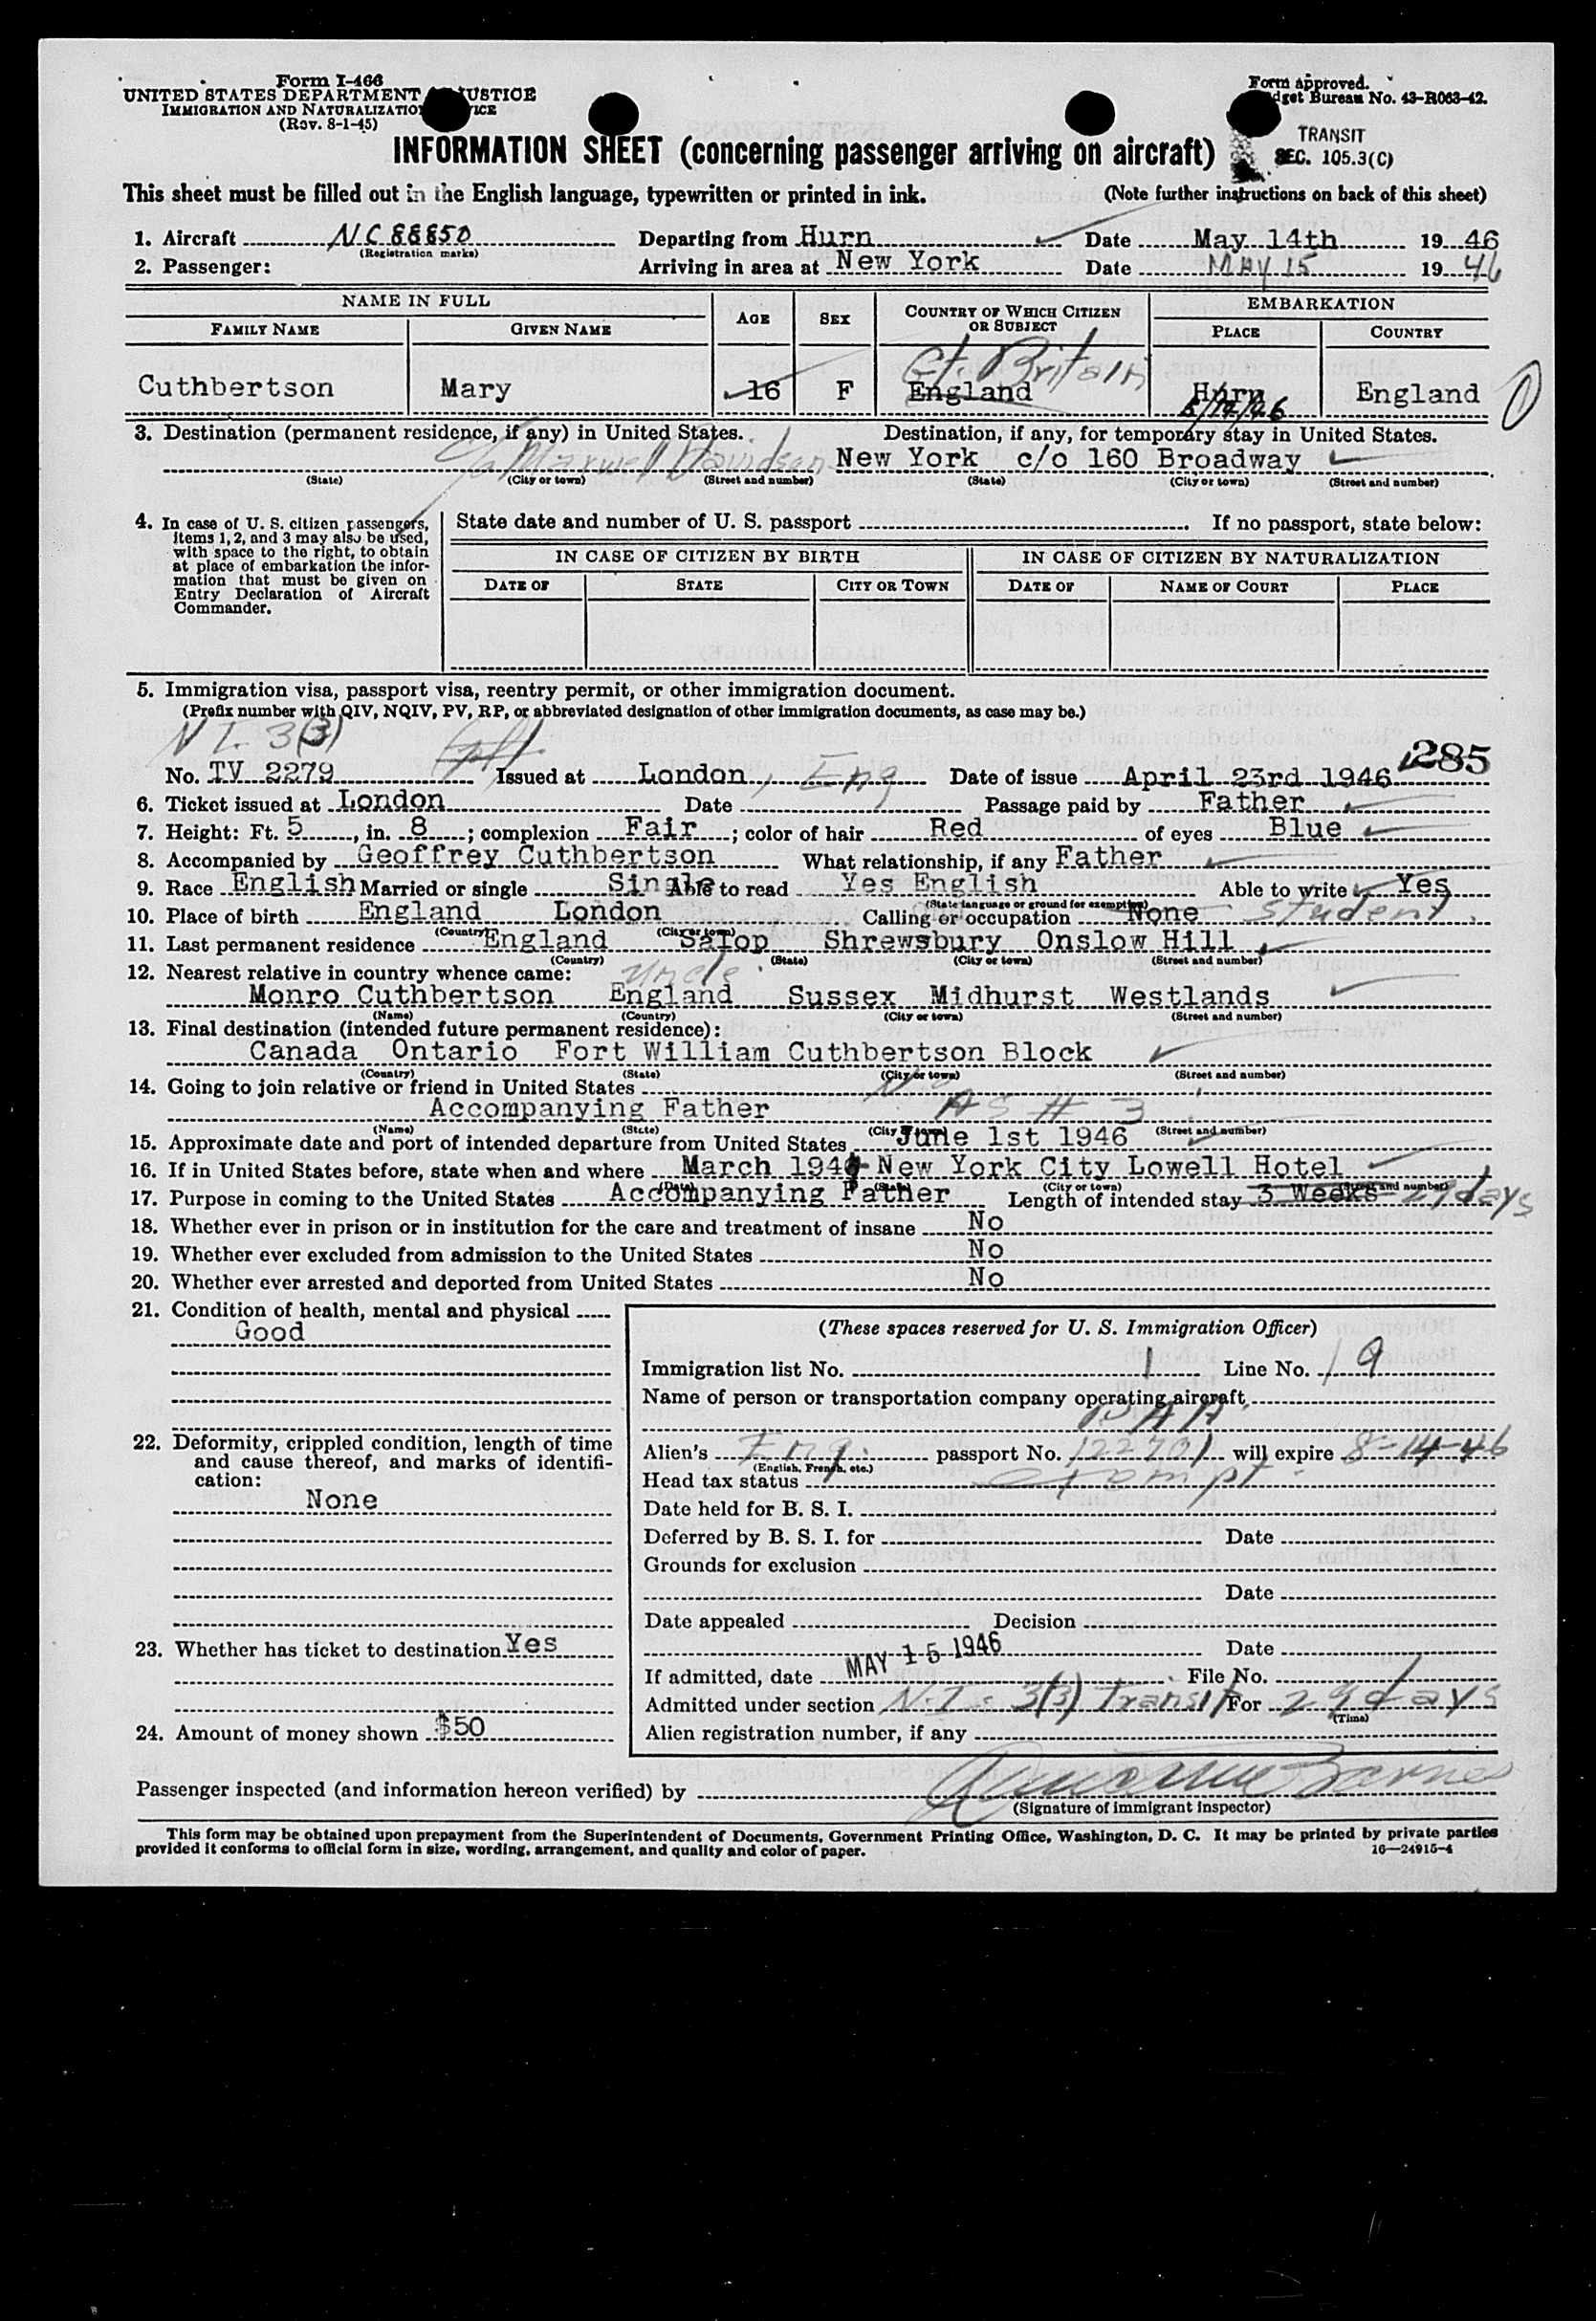 Form I-466
UNITED STATES DEPARTMENT JUSTICE
IMMIGRATION AND NATURALIZATION
(Rev. 8-1-45)
Form approved.
Budget Bureau No. 43-R063-42.
TRANSIT
SEC. 105.3(C)
INFORMATION SHEET (concerning passenger arriving on aircraft)
This sheet must be filled out in the English language, typewritten or printed in ink. (Note further instructions on back of this sheet)
1. Aircraft NC 88850 Departing from Hurn Date May 14th 1946
(Registration marks)
2. Passenger: Arriving in area at New York Date MAY 15 1946
NAME IN FULL AGE SEX COUNTRY OF WHICH CITIZEN OR SUBJECT EMBARKATION
FAMILY NAME GIVEN NAME PLACE COUNTRY
Gt. Britain
Cuthbertson Mary 16 F England Hurn England
3. Destination (permanent residence, if any) in United States. Destination, if any, for temporary stay in United States.
c/o Maxwell Davidson New York c/o 160 Broadway
(State) (City or town) (Street and number) (State) (City or town) (Street and number)
4. In case of U. S. citizen passengers, items 1, 2, and 3 may also be used, with space to the right, to obtain at place of embarkation the information that must be given on Entry Declaration of Aircraft Commander.
State date and number of U. S. passport If no passport, state below:
IN CASE OF CITIZEN BY BIRTH IN CASE OF CITIZEN BY NATURALIZATION
DATE OF STATE CITY OR TOWN DATE OF NAME OF COURT PLACE
5. Immigration visa, passport visa, reentry permit, or other immigration document.
(Prefix number with QIV, NQIV, PV, RP, or abbreviated designation of other immigration documents, as case may be.)
NI 3(3)
285
No. TV 2279 Issued at London, Eng Date of issue April 23rd 1946
6. Ticket issued at London Date Passage paid by Father
7. Height: Ft. 5, in. 8; complexion Fair; color of hair Red of eyes Blue
8. Accompanied by Geoffrey Cuthbertson What relationship, if any Father
9. Race English Married or single Single Able to read Yes English Able to write Yes
(State language or ground for exemption)
10. Place of birth England London Calling or occupation None Student.
(Country) (City or town)
11. Last permanent residence England Salop Shrewsbury Onslow Hill
(Country) (State) (City or town) (Street and number)
12. Nearest relative in country whence came: Uncle
Monro Cuthbertson England Sussex Midhurst Westlands
(Name) (Country) (City or town) (Street and number)
13. Final destination (intended future permanent residence):
Canada Ontario Fort William Cuthbertson Block
(Country) (State) (City or town) (Street and number)
14. Going to join relative or friend in United States
Accompanying Father AS # 3
(Name) (State) (City or town) (Street and number)
15. Approximate date and port of intended departure from United States June 1st 1946
16. If in United States before, state when and where March 194 New York City Lowell Hotel
(Date) (State) (City or town) (Street and number)
17. Purpose in coming to the United States Accompanying Father Length of intended stay 3 Weeks 29 days
18. Whether ever in prison or in institution for the care and treatment of insane No
19. Whether ever excluded from admission to the United States No
20. Whether ever arrested and deported from United States No
21. Condition of health, mental and physical
Good
22. Deformity, crippled condition, length of time and cause thereof, and marks of identification:
None
23. Whether has ticket to destination Yes
24. Amount of money shown $50
(These spaces reserved for U. S. Immigration Officer)
Immigration list No. 1 Line No. 19
Name of person or transportation company operating aircraft
PAA
Alien's Eng. passport No. 122701 will expire 8-14-46
(English, French, etc.)
Head tax status exempt
Date held for B. S. I.
Deferred by B. S. I. for Date
Grounds for exclusion
Date
Date appealed Decision
Date
If admitted, date MAY 15 1946 File No.
Admitted under section N.I. 3(3) Transit For 29 days
(Time)
Alien registration number, if any
Passenger inspected (and information hereon verified) by Barnes
(Signature of immigrant inspector)
This form may be obtained upon prepayment from the Superintendent of Documents, Government Printing Office, Washington, D. C. It may be printed by private parties
provided it conforms to official form in size, wording, arrangement, and quality and color of paper. 16—24915-4